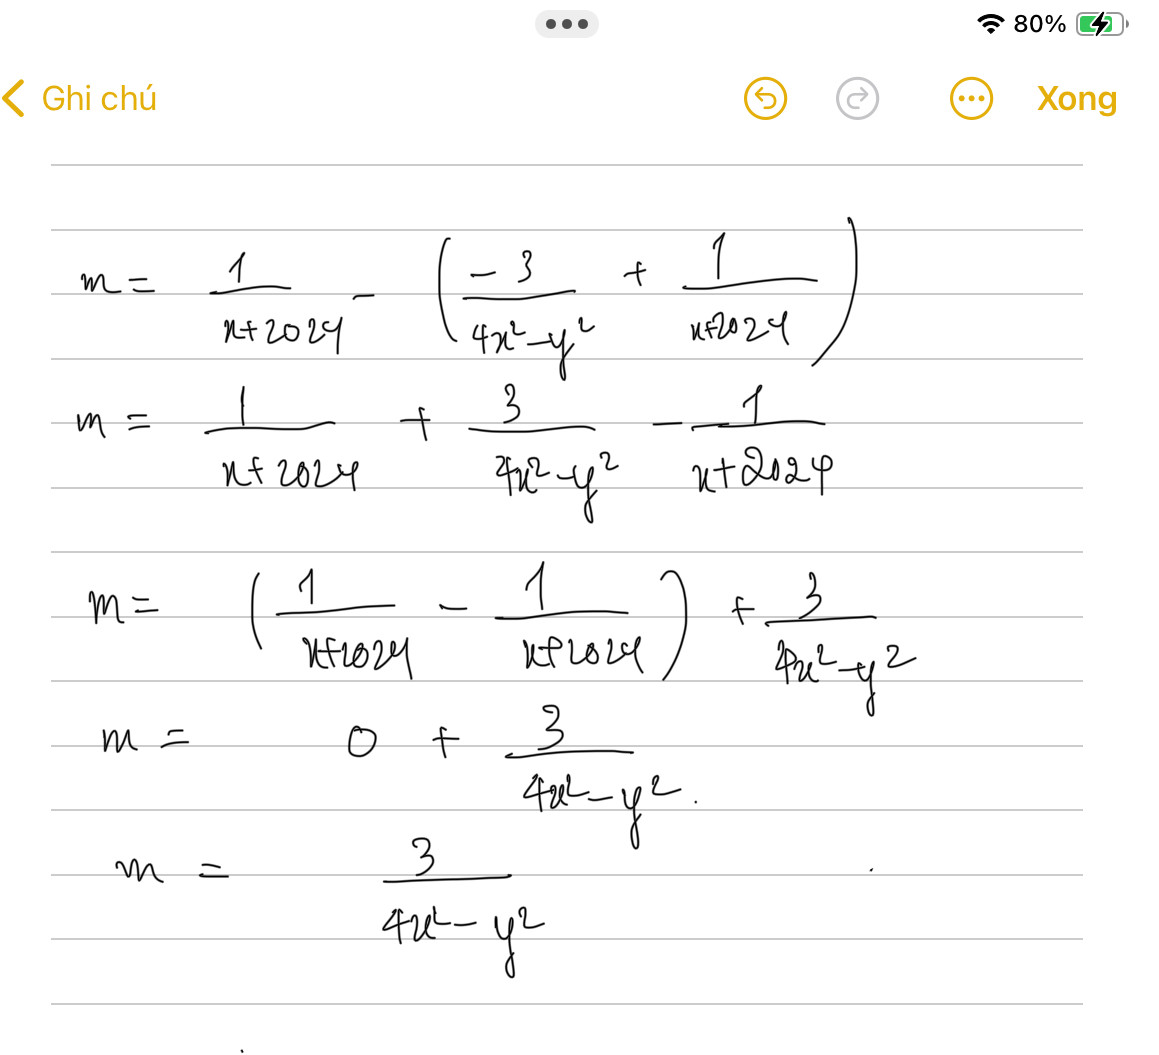 80%
Ghi chú Xong
m = \frac{1}{x+2024} - \left( \frac{-3}{4x^2-y^2} + \frac{1}{x+2024} \right)
m = \frac{1}{x+2024} + \frac{3}{4x^2-y^2} - \frac{1}{x+2024}
m = \left( \frac{1}{x+2024} - \frac{1}{x+2024} \right) + \frac{3}{4x^2-y^2}
m = 0 + \frac{3}{4x^2-y^2}.
m = \frac{3}{4x^2-y^2}